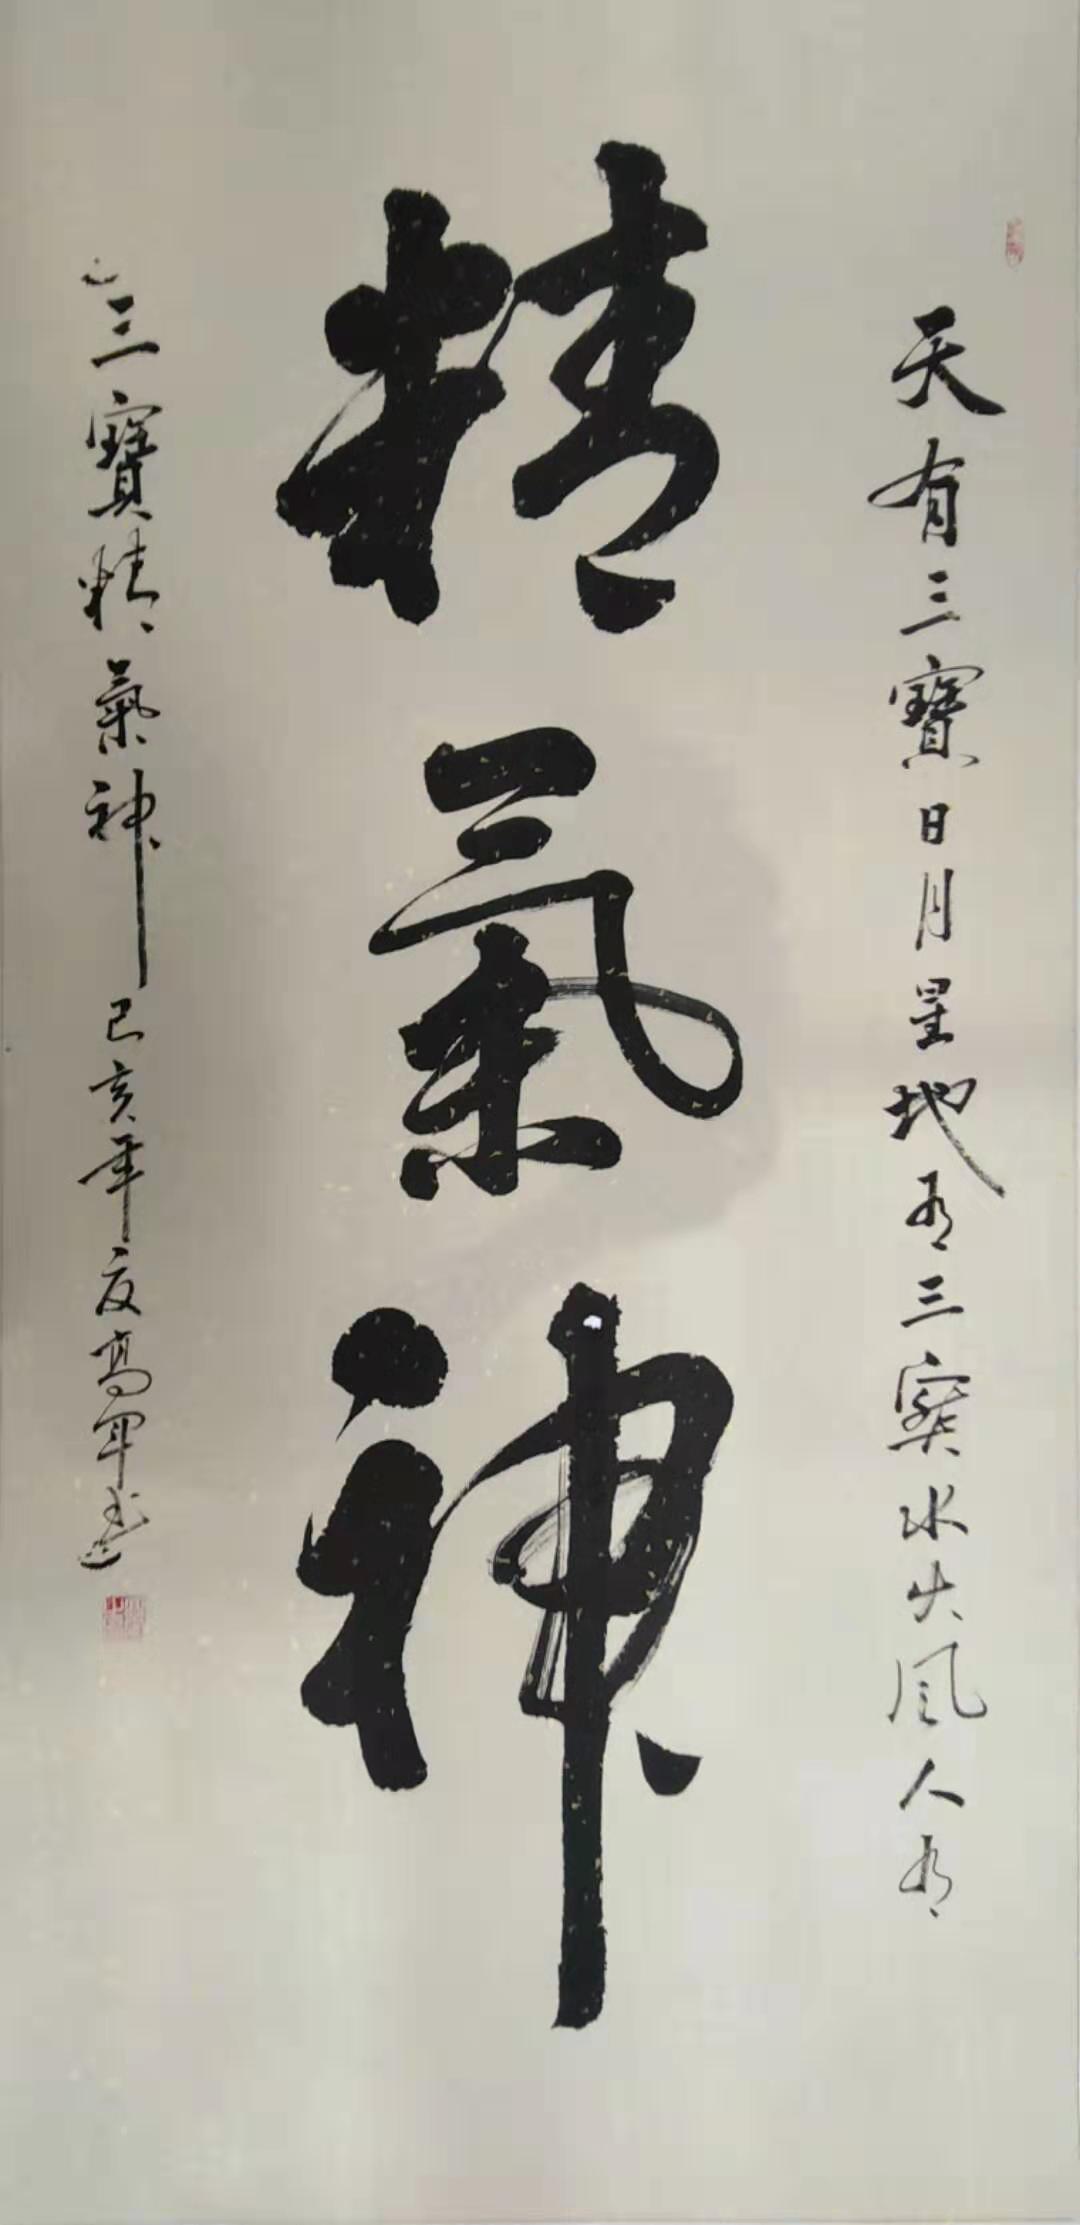 天有三寶日月星地有三寶水火風人有
精氣神
三寶精氣神己亥年夏高軍書